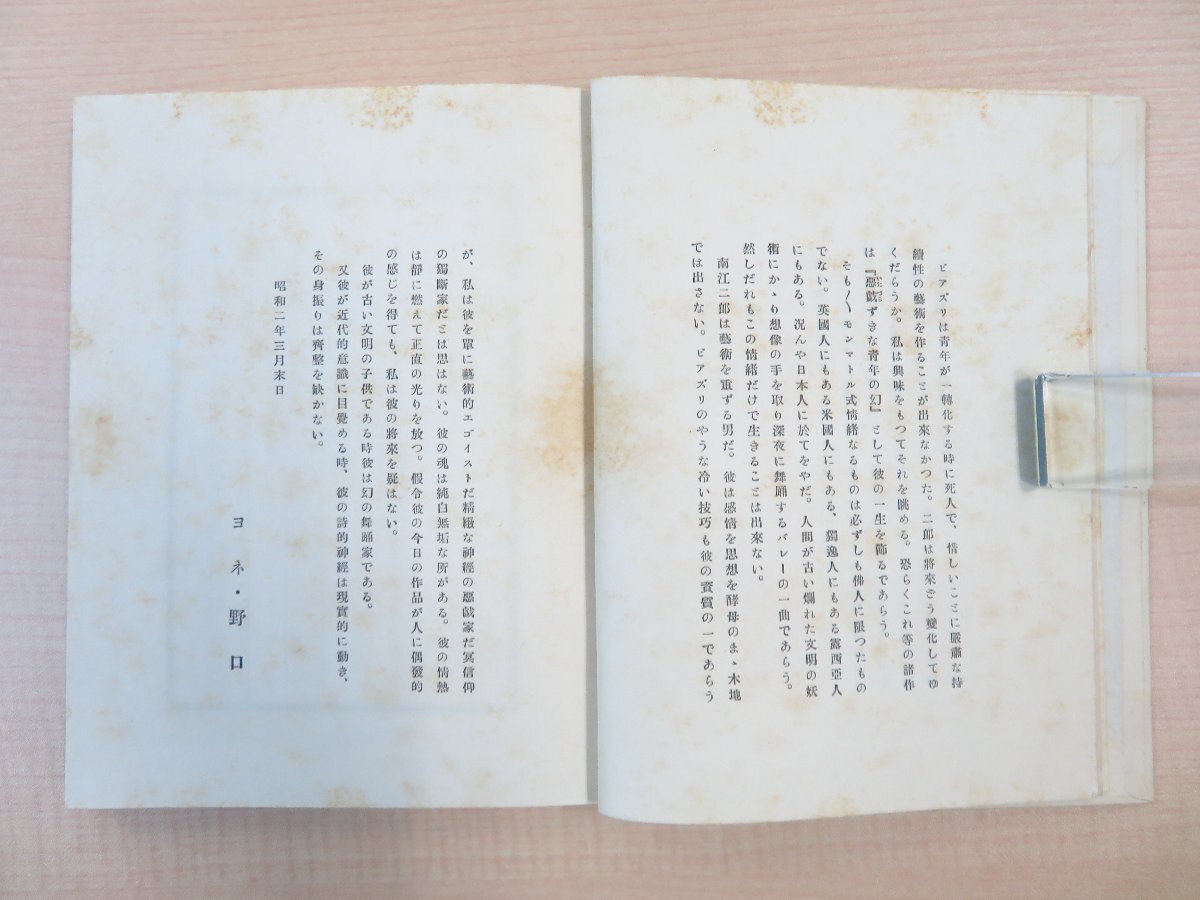 ビアズリは青年が一轉化する時に死人で、惜しいことに嚴肅な持
續性の藝術を作ることが出來なかつた。二郎は將來どう變化してゆ
くだらうか。私は興味をもつてそれを眺める。恐らくこれ等の諸作
は『惡戯ずきな青年の幻』として彼の一生を飾るであらう。
そも〳〵モンマトル式情緒なるものは必ずしも佛人に限つたもの
でない。英國人にもある米國人にもある、獨逸人にもある露西亞人
にもある。況んや日本人に於てをやだ。人間が古い爛れた文明の妖
術にかゝり想像の手を取り深夜に舞踊するバレーの一曲であらう。
然しだれもこの情緒だけで生きることは出來ない。
南江二郎は藝術を重ずる男だ。彼は感情を思想を酵母のまゝ木地
では出さない。ビアズリのやうな冷い技巧も彼の資質の一であらう
が、私は彼を單に藝術的エゴイストだ精緻な神經の惡戯家だ冥信仰
の獨斷家だとは思はない。彼の魂は純白無垢な所がある。彼の情熱
は靜に燃えて正直の光りを放つ。假令彼の今日の作品が人に偶發的
の感じを得ても、私は彼の將來を疑はない。
彼が古い文明の子供である時彼は幻の舞踊家である。
又彼が近代的意識に目覺める時、彼の詩的神經は現實的に動き、
その身振りは齊整を缺かない。
昭和二年三月末日
ヨネ・野口